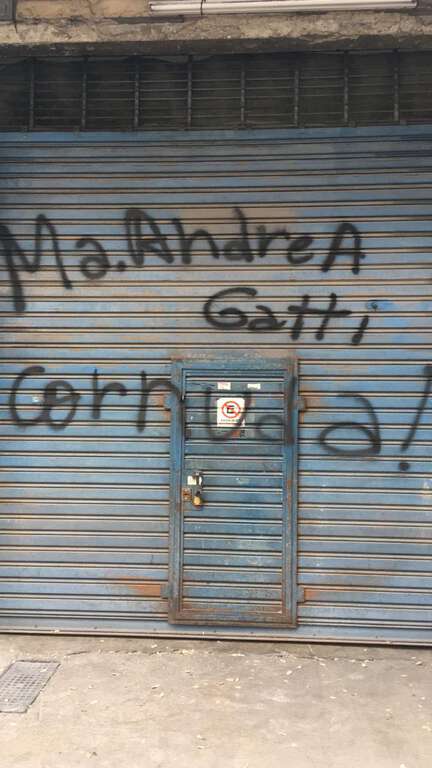 Ma. AndreA
Gatti
Cornuda!
E